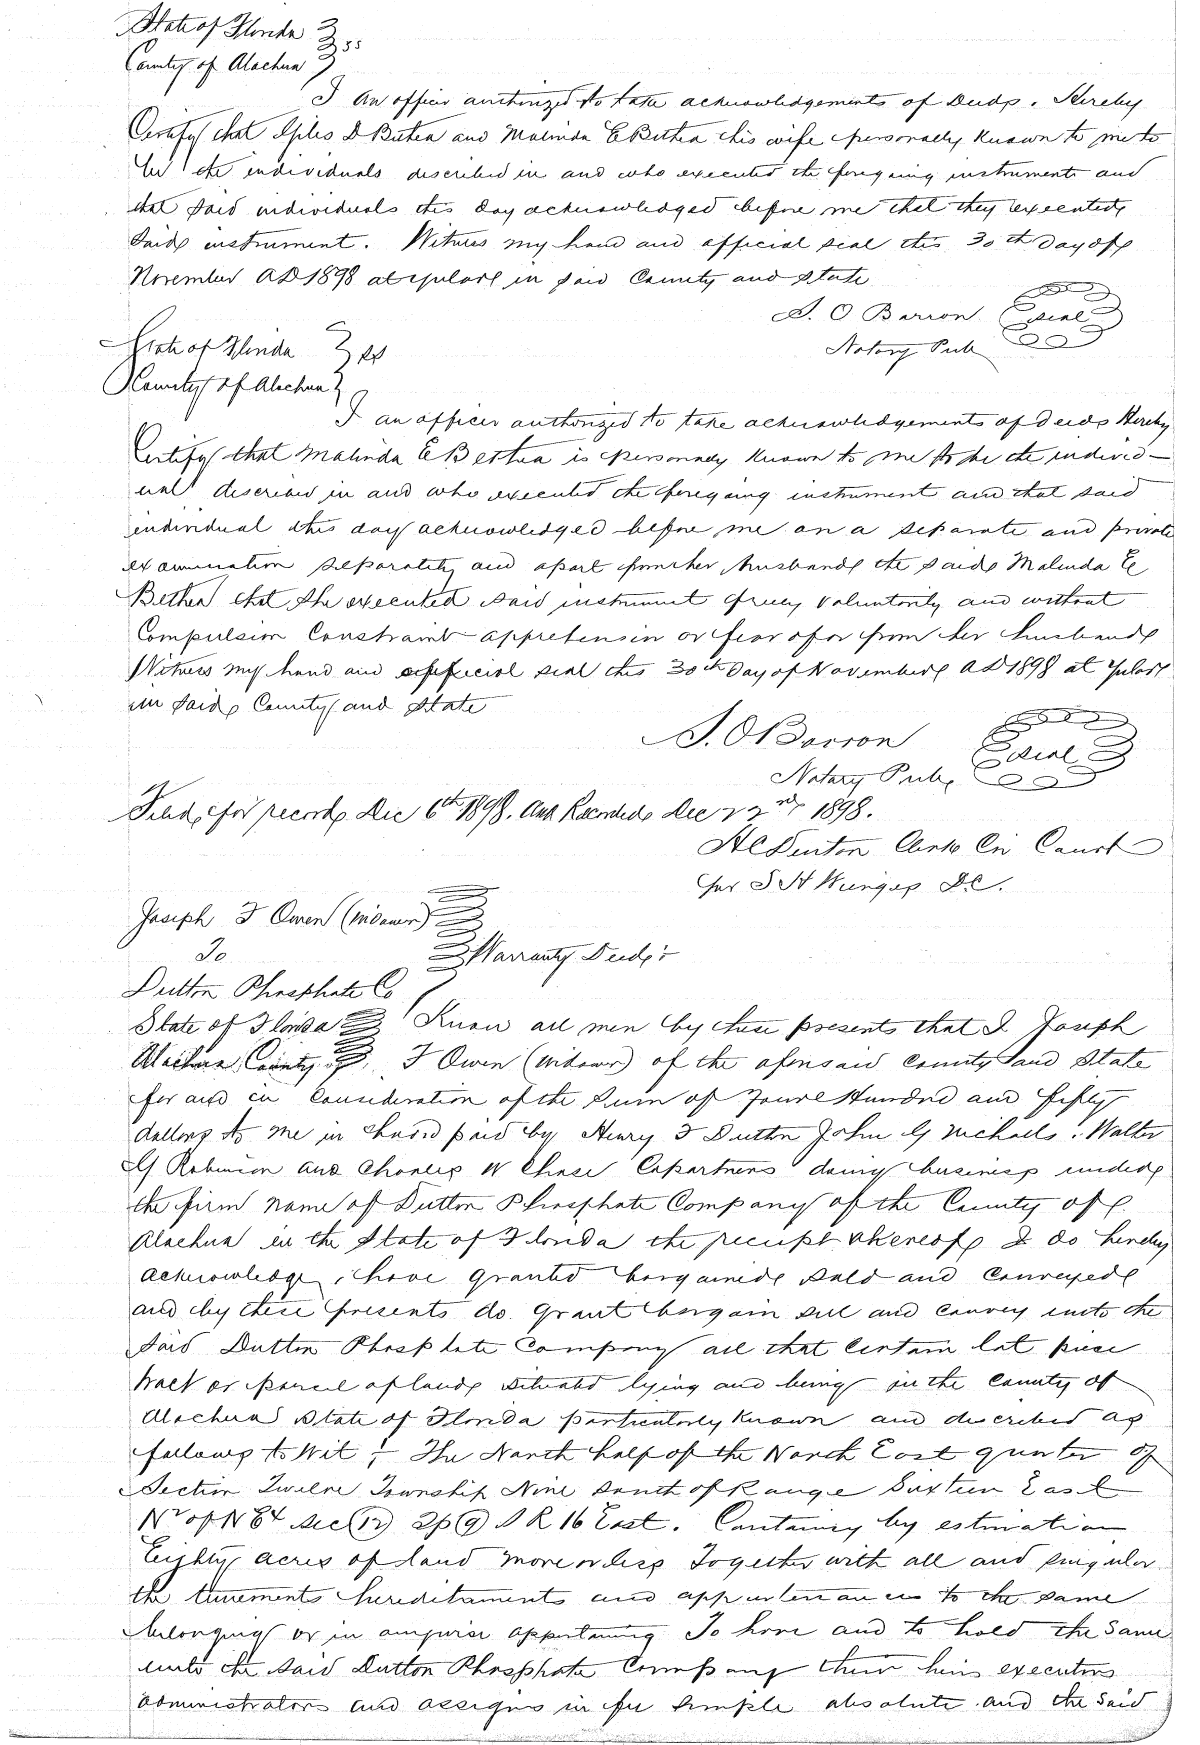 State of Florida
County of Alachua ss
I an officer authorized to take acknowledgements of Deeds. Hereby
Certify that D Bethea and Malinda E Bethea his wife personally known to me to
be the individuals described in and who executed the foregoing instrument and
that said individuals this day acknowledged before me that they executed
said instrument. Witness my hand and official seal this 30th day of
November AD 1898 at in said County and State
S. O Barron seal
Notary Pub
State of Florida ss
County of Alachua
I an officer authorized to take acknowledgements of deeds Hereby
Certify that Malinda E Bethea is personally known to me to be the individ-
ual described in and who executed the foregoing instrument and that said
individual this day acknowledged before me on a separate and private
examination separately and apart from her husband the said Malinda E
Bethea that she executed said instrument freely voluntarily and without
Compulsion Constraint apprehension or fear of or from her husband
Witness my hand and official seal this 30th day of November AD 1898 at
in said County and State
S. O Barron seal
Notary Pub
Filed for record Dec 6th 1898. And Recorded Dec 22nd 1898.
H C Denton Clerk Cir Court
per S H Wienges D.C.
Joseph F Owen (widower)
To Warranty Deed
Dutton Phosphate Co
State of Florida Know all men by these presents that I Joseph
Alachua County F Owen (widower) of the aforesaid county and State
for and in Consideration of the Sum of Four Hundred and fifty
dollars to me in hand paid by Henry F Dutton John G Nichols Walter
G Robinson and Charles W Chase Copartners doing business under
the firm name of Dutton Phosphate Company of the County of
Alachua in the State of Florida the receipt whereof I do hereby
acknowledge, have granted bargained sold and conveyed
and by these presents do grant bargain sell and convey unto the
said Dutton Phosphate Company all that certain lot piece
tract or parcel of land situated lying and being in the County of
Alachua State of Florida particularly known and described as
follows to Wit: The North half of the North East quarter of
Section Twelve Township Nine South of Range Sixteen East
of N E 4 Sec (12) Tp (9) S R 16 East. Containing by estimation
Eighty acres of land more or less Together with all and singular
the tenements hereditaments and appurtenances to the same
belonging or in anywise appertaining To have and to hold the same
unto the said Dutton Phosphate Company their heirs executors
administrators and assigns in fee simple absolute and the said